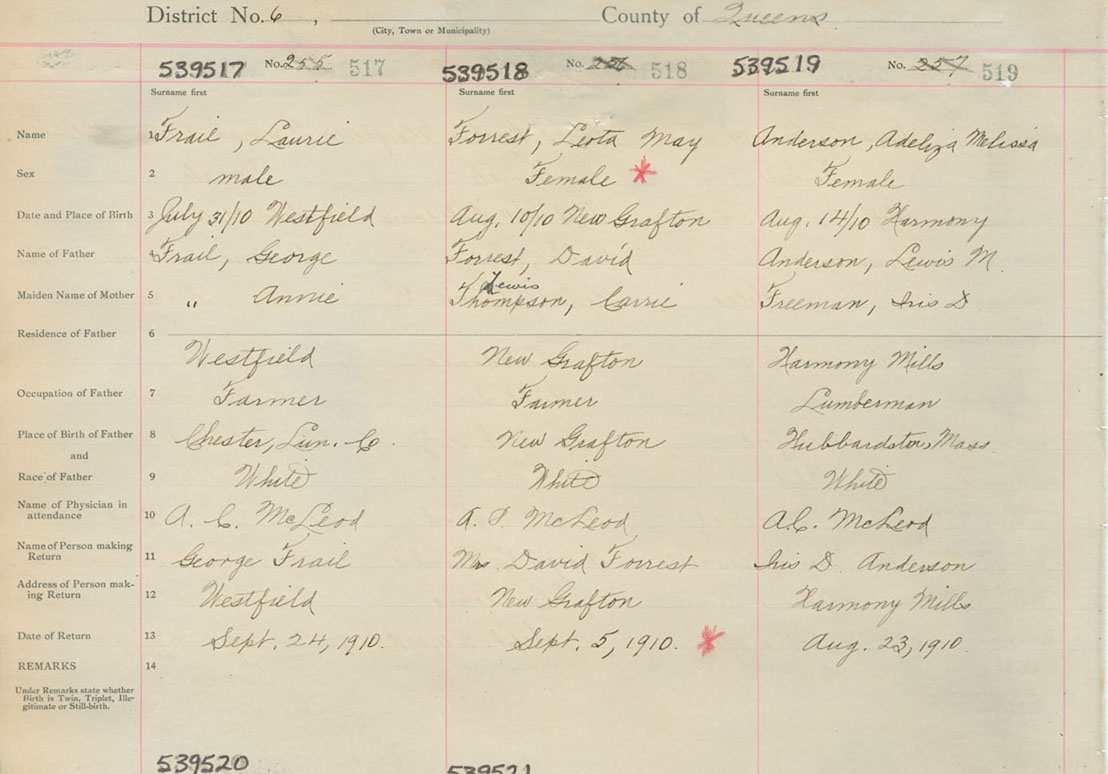 District No. 6 , County of Queens
(City, Town or Municipality)
539517 No. 255 517 539518 No. 256 518 539519 No. 257 519
Surname first Surname first Surname first
Name 1 Frail, Laurie Forrest, Leota May Anderson, Adeliza Melissa
Sex 2 male Female * Female
Date and Place of Birth 3 July 31/10 Westfield Aug. 10/10 New Grafton Aug. 14/10 Harmony
Name of Father 4 Frail, George Forrest, David Anderson, Lewis M.
Lewis
Maiden Name of Mother 5 " Annie Thompson, Carrie Freeman, Iris D
Residence of Father 6
Westfield New Grafton Harmony Mills
Occupation of Father 7 Farmer Farmer Lumberman
Place of Birth of Father 8 Chester, Lun. C. New Grafton Hubbardston, Mass.
and
Race of Father 9 White White White
Name of Physician in
attendance 10 A. C. McLeod A. McLeod A.C. McLeod
Name of Person making
Return 11 George Frail Mrs David Forrest Iris D. Anderson
Address of Person mak-
ing Return 12 Westfield New Grafton Harmony Mills
Date of Return 13 Sept. 24, 1910. Sept. 5, 1910. * Aug. 23, 1910.
REMARKS 14
Under Remarks state whether
Birth is Twin, Triplet, Ille-
gitimate or Still-birth.
539520 539521